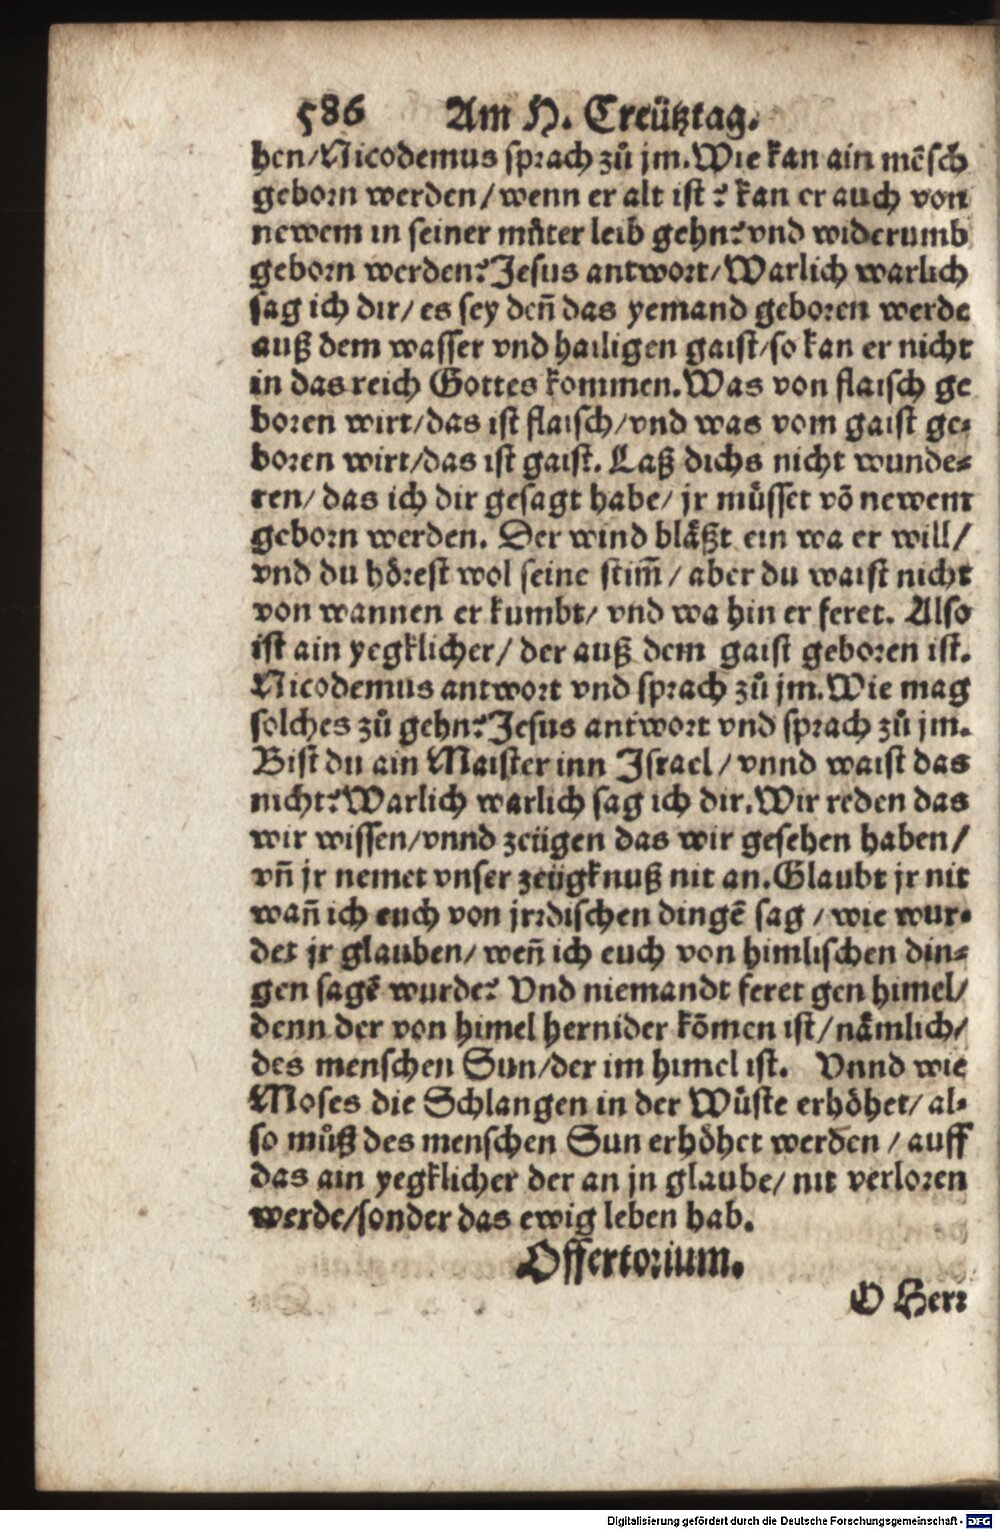 586 Am H. Creütztag.
hen/Nicodemus sprach zů jm.Wie kan ain mẽsch
geborn werden/wenn er alt ist? kan er auch von
newem in seiner můter leib gehn?vnd widerumb
geborn werden?Jesus antwort/Warlich warlich
sag ich dir/es sey deñ das yemand geboren werde
auß dem wasser vnd hailigen gaist/so kan er nicht
in das reich Gottes kommen.Was von flaisch ge
boren wirt/das ist flaisch/vnd was vom gaist ge-
boren wirt/das ist gaist. Laß dichs nicht wunde-
ren/das ich dir gesagt habe/jr müsset võ newem
geborn werden. Der wind blåßt ein wa er will/
vnd du hörest wol seine stim̃/aber du waist nicht
von wannen er kumbt/vnd wa hin er feret. Also
ist ain yegklicher/der auß dem gaist geboren ist.
Nicodemus antwort vnd sprach zů jm.Wie mag
solches zů gehn?Jesus antwort vnd sprach zů jm.
Bist du ain Maister inn Israel/vnnd waist das
nicht?Warlich warlich sag ich dir.Wir reden das
wir wissen/vnnd zeügen das wir gesehen haben/
vñ jr nemet vnser zeügknuß nit an.Glaubt jr nit
wañ ich euch von jrrdischen dingẽ sag/wie wur-
det jr glauben/weñ ich euch von himlischen din-
gen sagẽ wurde? Vnd niemandt feret gen himel/
denn der von himel hernider kõmen ist/nåmlich/
des menschen Sun/der im himel ist. Vnnd wie
Moses die Schlangen in der Wüste erhöhet/al-
so můß des menschen Sun erhöhet werden/auff
das ain yegklicher der an jn glaube/nit verloren
werde/sonder das ewig leben hab.
Offertorium.
O Herr
Digitalisierung gefördert durch die Deutsche Forschungsgemeinschaft - DFG